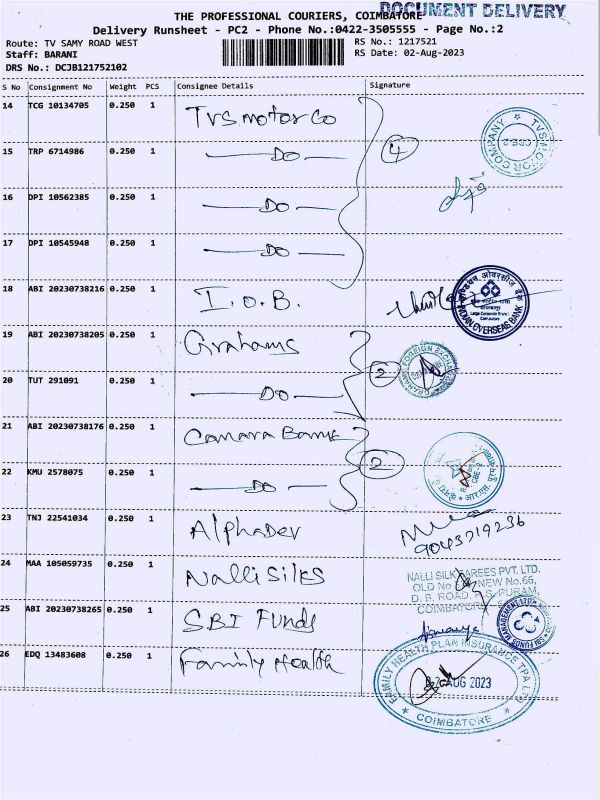 DOCUMENT DELIVERY
THE PROFESSIONAL COURIERS, COIMBATORE
Delivery Runsheet - PC2 - Phone No.:0422-3505555 - Page No.:2
Route: TV SAMY ROAD WEST RS No.: 1217521
Staff: BARANI RS Date: 02-Aug-2023
DRS No.: DCJB121752102
S No Consignment No Weight PCS Consignee Details Signature
14 TCG 10134705 0.250 1 TVS motor Co
TVS MOTOR COMPANY
15 TRP 6714986 0.250 1 DO 4
16 DPI 10562385 0.250 1 DO
17 DPI 10545948 0.250 1 DO
18 ABI 20230738216 0.250 1 I.O.B.
इण्डियन ओवरसीज़ बैंक
INDIAN OVERSEAS BANK
19 ABI 20230738205 0.250 1 Grahams
20 TUT 291091 0.250 1 DO 2
21 ABI 20230738176 0.250 1 Canara Bank
22 KMU 2578075 0.250 1 DO 2
23 TNJ 22541034 0.250 1 Alphadev
9043719236
24 MAA 105059735 0.250 1 Nalli Silks
NALLI SILK SAREES PVT. LTD.
OLD No NEW No.66,
D. B. ROAD, R.S. PURAM,
COIMBATORE
25 ABI 20230738265 0.250 1 SBI Funds
SBI FUNDS MANAGEMENT LTD
26 EDQ 13483608 0.250 1 Family Health
FAMILY HEALTH PLAN INSURANCE TPA LTD
02 AUG 2023
COIMBATORE